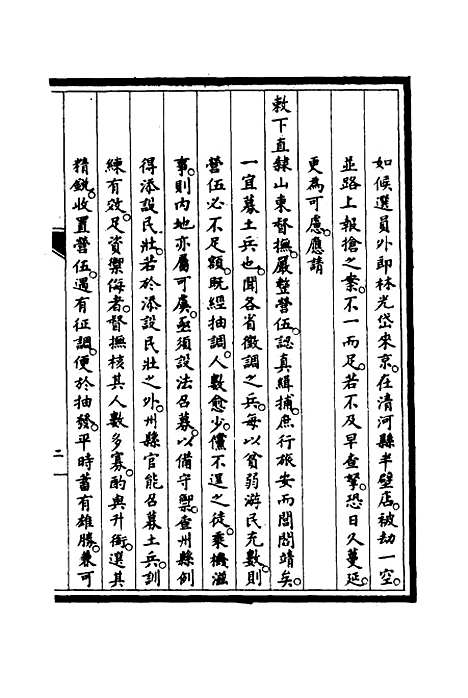 如候選員外郎林光岱來京。在清河縣半壁店。被劫一空。
並路上報搶之案。不一而足。若不及早查拏。恐日久蔓延。
更為可慮。應請
敕下直隸山東督撫。嚴整營伍。認真緝捕。庶行旅安而閭閻靖矣。
一宜募土兵也。聞各省徵調之兵。每以貧弱游民充數。則
營伍必不足額。旣經抽調。人數愈少。儻不逞之徒。乘機滋
事。則內地亦屬可虞。亟須設法召募。以備守禦。查州縣例
得添設民壯。若於添設民壯之外。州縣官能召募土兵。訓
練有效。足資禦侮者。督撫核其人數多寡。酌與升銜。選其
精銳。收置營伍。遇有征調。便於抽發。平時蓄有雄勝。兼可
二